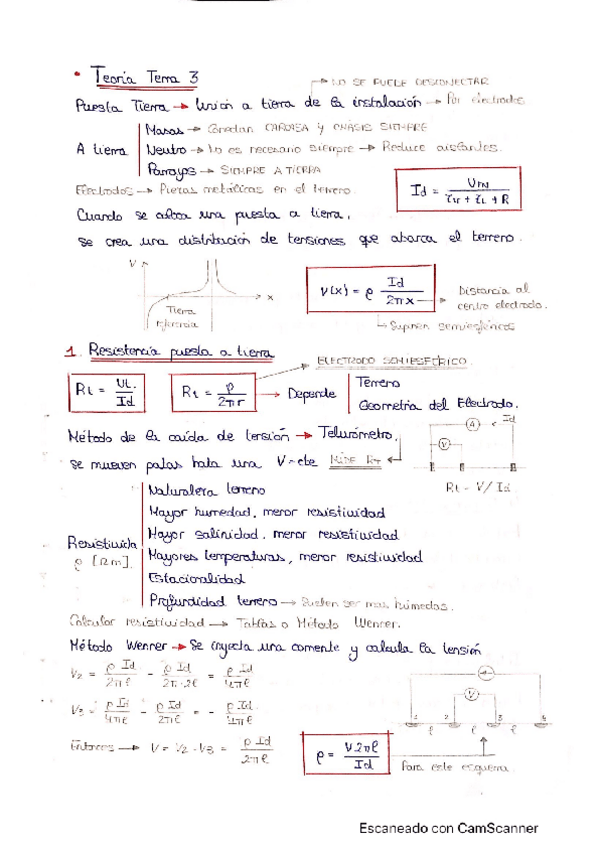 • Teoría Tema 3
NO SE PUEDE DESCONECTAR
Puesta Tierra → Unión a tierra de la instalación → Por electrodos
A tierra
Masas → Conectan CARCASA y CHASIS SIEMPRE
Neutro → No es necesario siempre → Reduce aislantes.
Pararrayos → SIEMPRE A TIERRA
Electrodos → Piezas metálicas en el terreno.
Id = / rN + rL + R
Cuando se aboca una puesta a tierra,
se crea una distribución de tensiones que abarca el terreno.
V
x
Tierra referencia
V(x) = ρ Id / 2πx
Distancia al centro electrodo.
Suponen semiesféricos
1. Resistencia puesta a tierra
ELECTRODO SEMIESFÉRICO
Rt = UL / Id
Rt = ρ / 2πr → Depende
Terreno
Geometría del Electrodo.
Método de la caída de tensión → Telurómetro.
A
Id
V
se mueven palas hata una V=cte MIDE RT
Rt = V/Id
Resistivida ρ [Ωm].
Naturaleza terreno
Mayor humedad, menor resistividad
Mayor salinidad, menor resistividad
Mayores temperaturas, menor resistividad
Estacionalidad
Profundidad terreno → Suelen ser mas húmedos.
Calcular resistividad → Tablas o Método Wenner.
Método Wenner → Se inyecta una corriente y calcula la tensión
V2 = ρ Id / 2πl - ρ Id / 2π·2l = ρ Id / 4πl
V3 = ρ Id / 4πl - ρ Id / 2πl = - ρ Id / 4πl
V
1 2 3 4
l l l
Entonces → V = V2 - V3 = ρ Id / 2πl
ρ = V2πl / Id
Para este esquema.
Escaneado con CamScanner